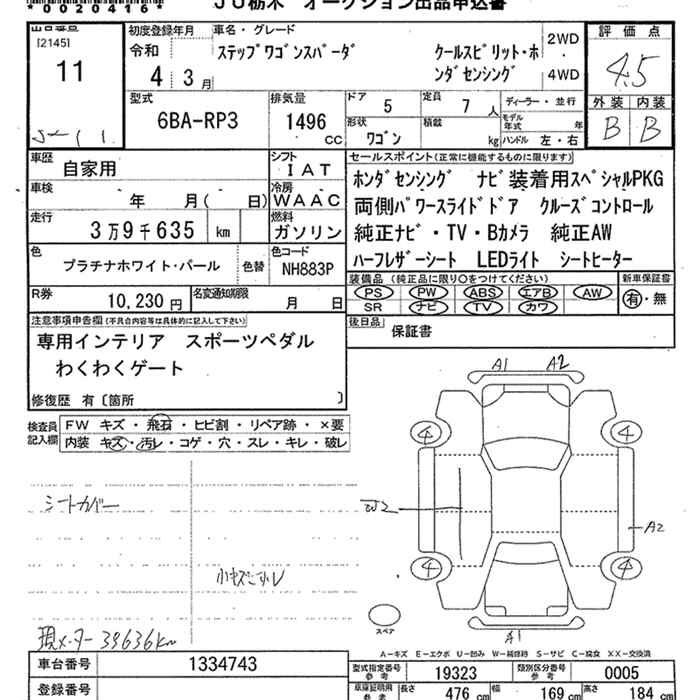 JU栃木 オークション出品申込書
*0020416*
[2145]
11
初度登録年月
令和
4年3月
車名・グレード
ステップワゴンスパーダ クールスピリット・ホンダセンシング
2WD
4WD
評価点
4.5
外装 内装
B B
型式
6BA-RP3
排気量
1496 cc
ドア 5
定員 7 人
ディーラー・並行
形状 ワゴン
積載 kg
モデル年式 年
ハンドル 左・右
車歴 自家用
シフト IAT
車検 年 月( 日)
冷房 WAAC
走行 3万9千635 km
燃料 ガソリン
色 プラチナホワイト・パール
色替
色コード NH883P
R券 10,230円
名変通知期限 月 日
セールスポイント(正常に機能するものに限ります)
ホンダセンシング ナビ装着用スペシャルPKG
両側パワースライドドア クルーズコントロール
純正ナビ・TV・Bカメラ 純正AW
ハーフレザーシート LEDライト シートヒーター
装備品 (純正品に限り○をつけてください)
PS PW ABS エアB AW
SR ナビ TV カワ
新車保証書
有・無
後日品 保証書
注意事項申告欄(不具合内容等は具体的に記入して下さい)
専用インテリア スポーツペダル
わくわくゲート
修復歴 有〔箇所 〕
検査員記入欄
FW キズ・飛石・ヒビ割・リペア跡・×要
内装 キズ・汚レ・コゲ・穴・スレ・キレ・破レ
シートカバー
現メーター 39636km
A1 A2
4 4
W2
A2
4 4
A1
スペア
A-キズ E-エクボ U-凹み W-補修跡 S-サビ C-腐食 XX-交換済
車台番号 1334743
登録番号
型式指定番号 参考 19323
類別区分番号 参考 0005
車庫証明用 参考
長さ 476 cm
幅 169 cm
高さ 184 cm